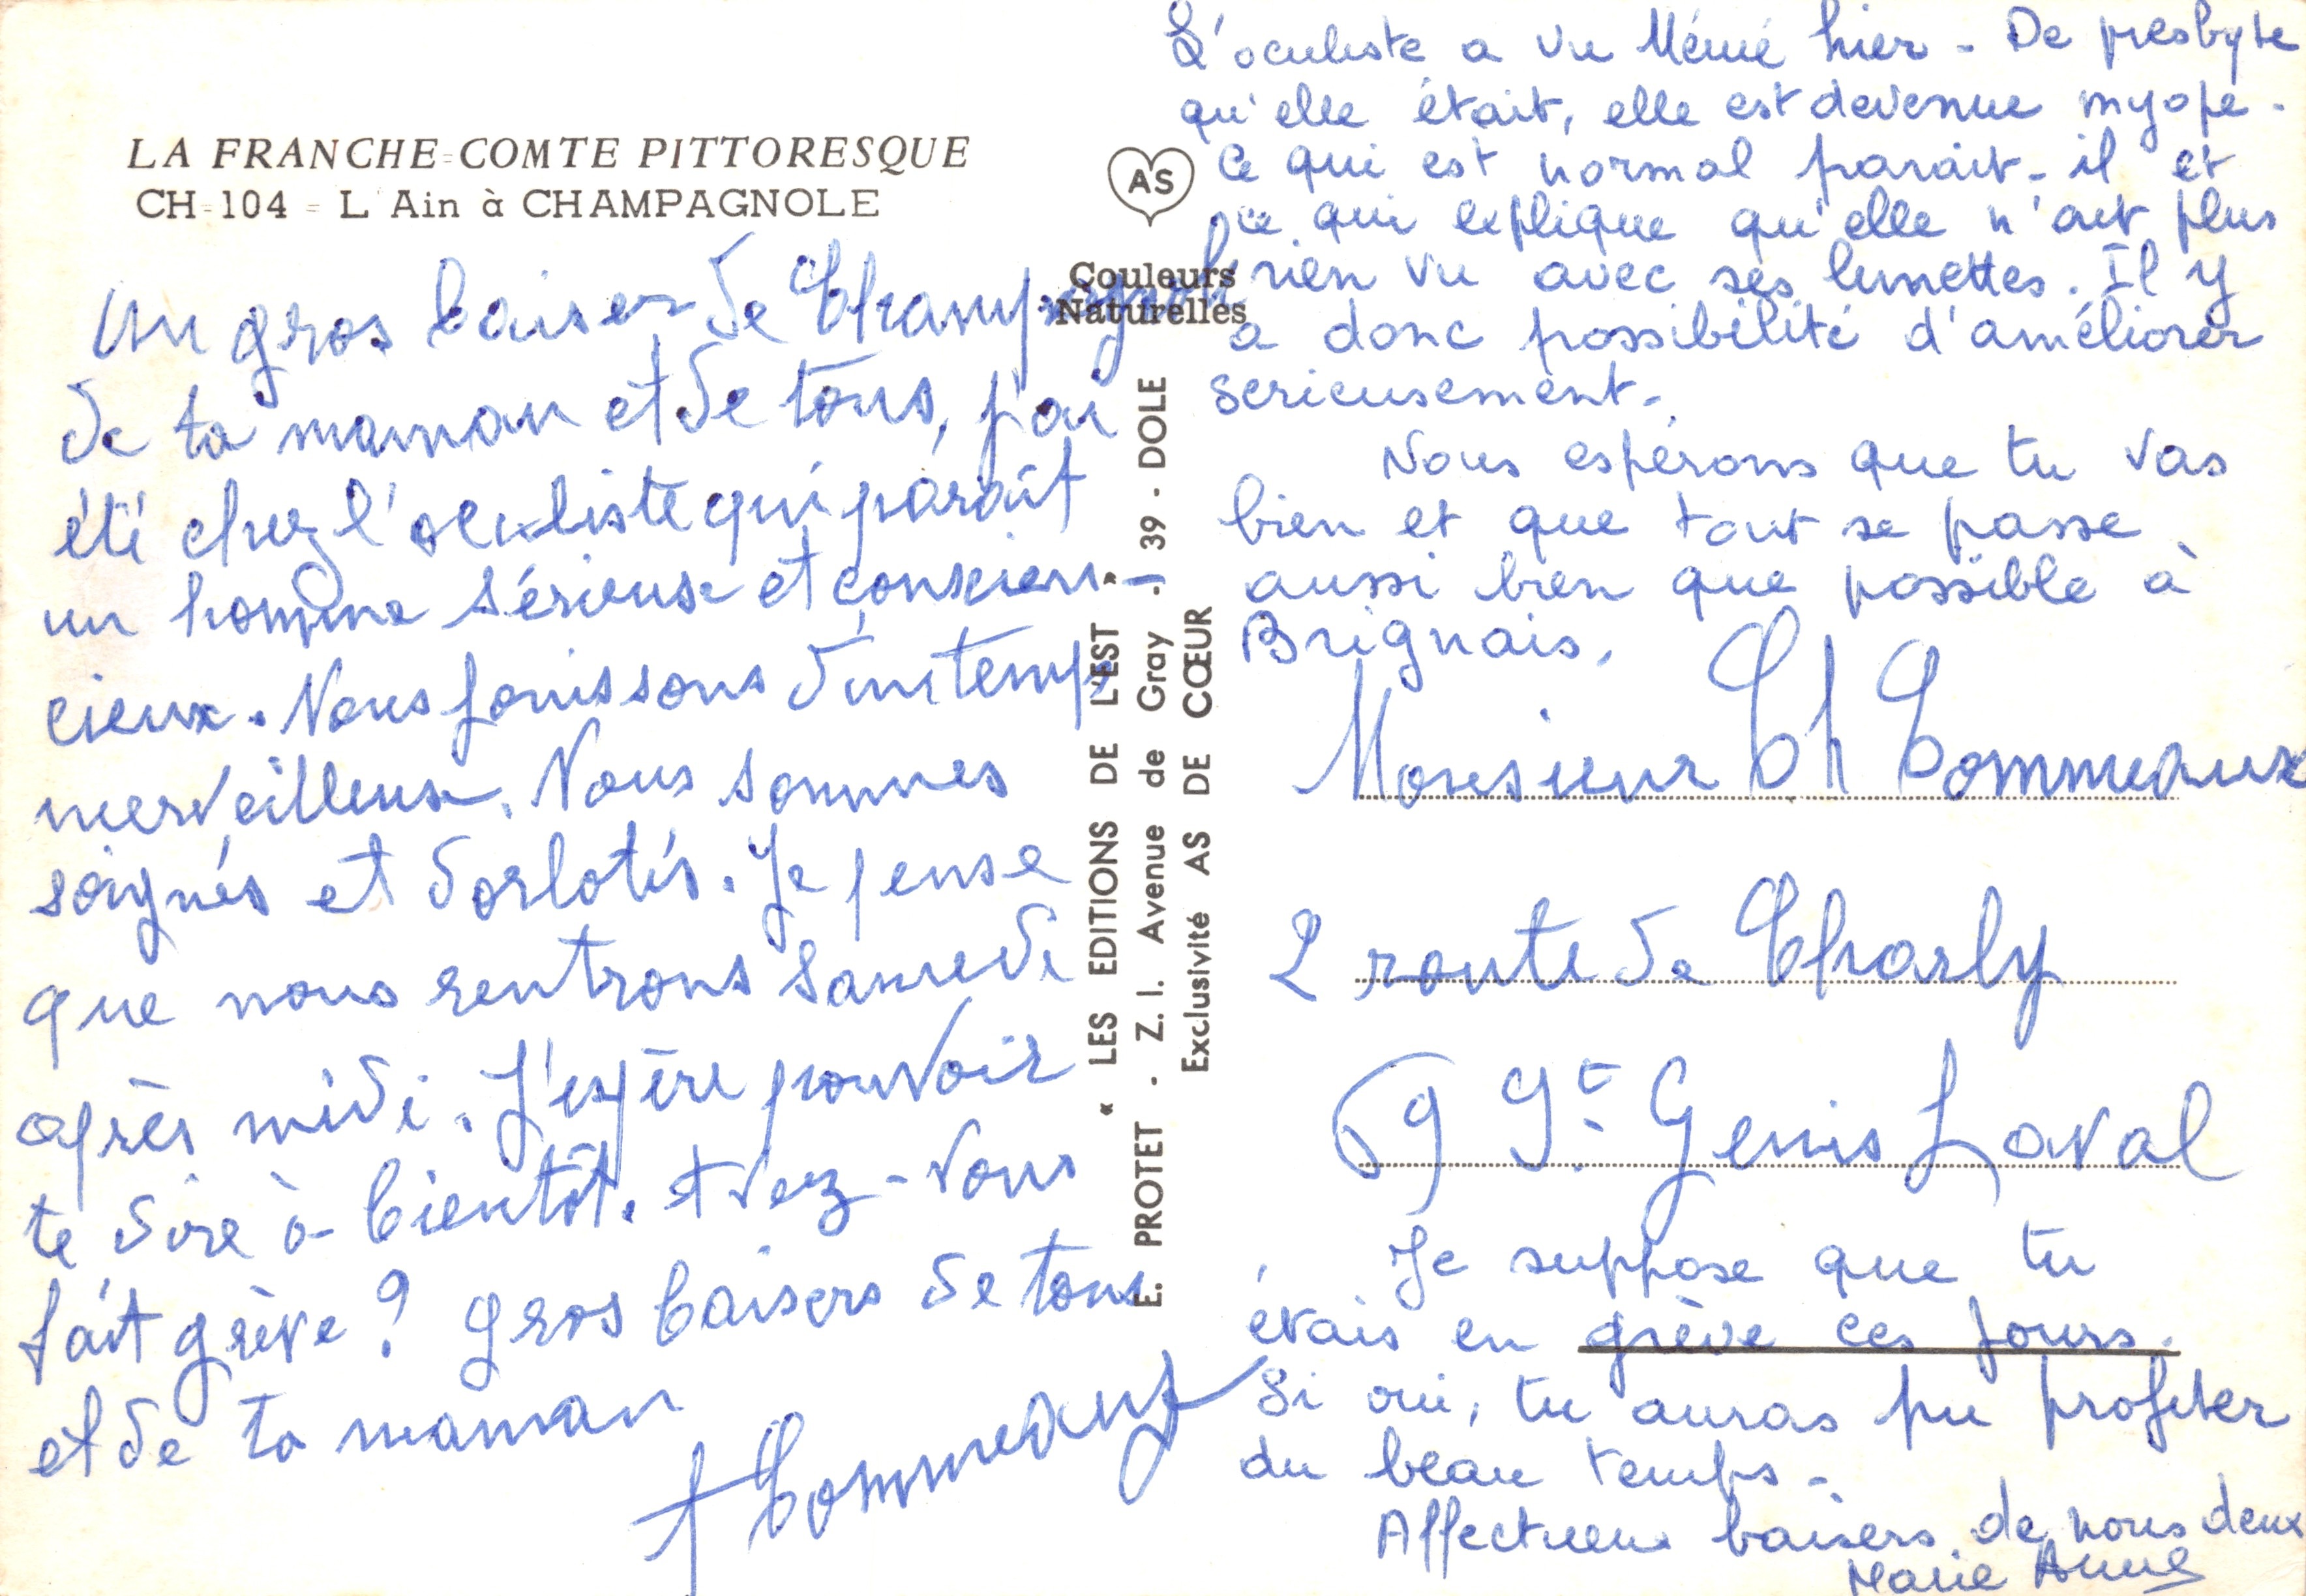 LA FRANCHE-COMTE PITTORESQUE
CH-104 - L'Ain à CHAMPAGNOLE
Un gros baiser de Champagnole
de ta maman et de tous, j'ai
été chez l'oculiste qui paraît
un homme sérieux et conscien-
cieux. Nous jouissons d'un temps
merveilleux. Nous sommes
soignés et dorlotés. Je pense
que nous rentrons samedi
après midi. J'espère pouvoir
te dire à bientôt. Avez-vous
fait grève? gros baisers de tous
et de ta maman
Commeaux
AS
Couleurs
Naturelles
« LES EDITIONS DE L'EST »
E. PROTET - Z. I. Avenue de Gray - 39 - DOLE
Exclusivité AS DE CŒUR
L'oculiste a vu Mémé hier - De presbyte
qu'elle était, elle est devenue myope -
Ce qui est normal parait-il et
ce qui explique qu'elle n'ait plus
rien vu avec ses lunettes. Il y
a donc possibilité d'améliorer
serieusement -
Nous espérons que tu vas
bien et que tout se passe
aussi bien que possible à
Brignais.
Monsieur Ch Commeaux
2 route de Charly
69 St Genis Laval
Je suppose que tu
étais en grève ces jours.
Si oui, tu auras pu profiter
du beau temps -
Affectueux baisers de nous deux
Marie Anne